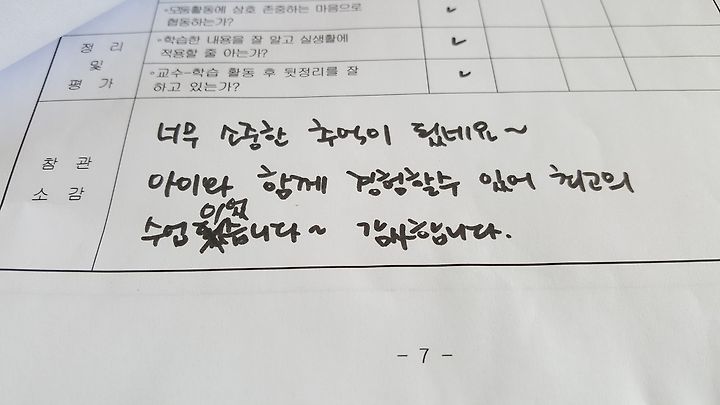 ◦모둠활동에 상호 존중하는 마음으로
협동하는가?
정 리
및
평 가
◦학습한 내용을 잘 알고 실생활에
적용할 줄 아는가?
◦교수-학습 활동 후 뒷정리를 잘
하고 있는가?
참 관
소 감
너무 소중한 추억이 됬네요~
아이와 함께 경험할수 있어 최고의
이었
수업 습니다~ 감사합니다.
- 7 -